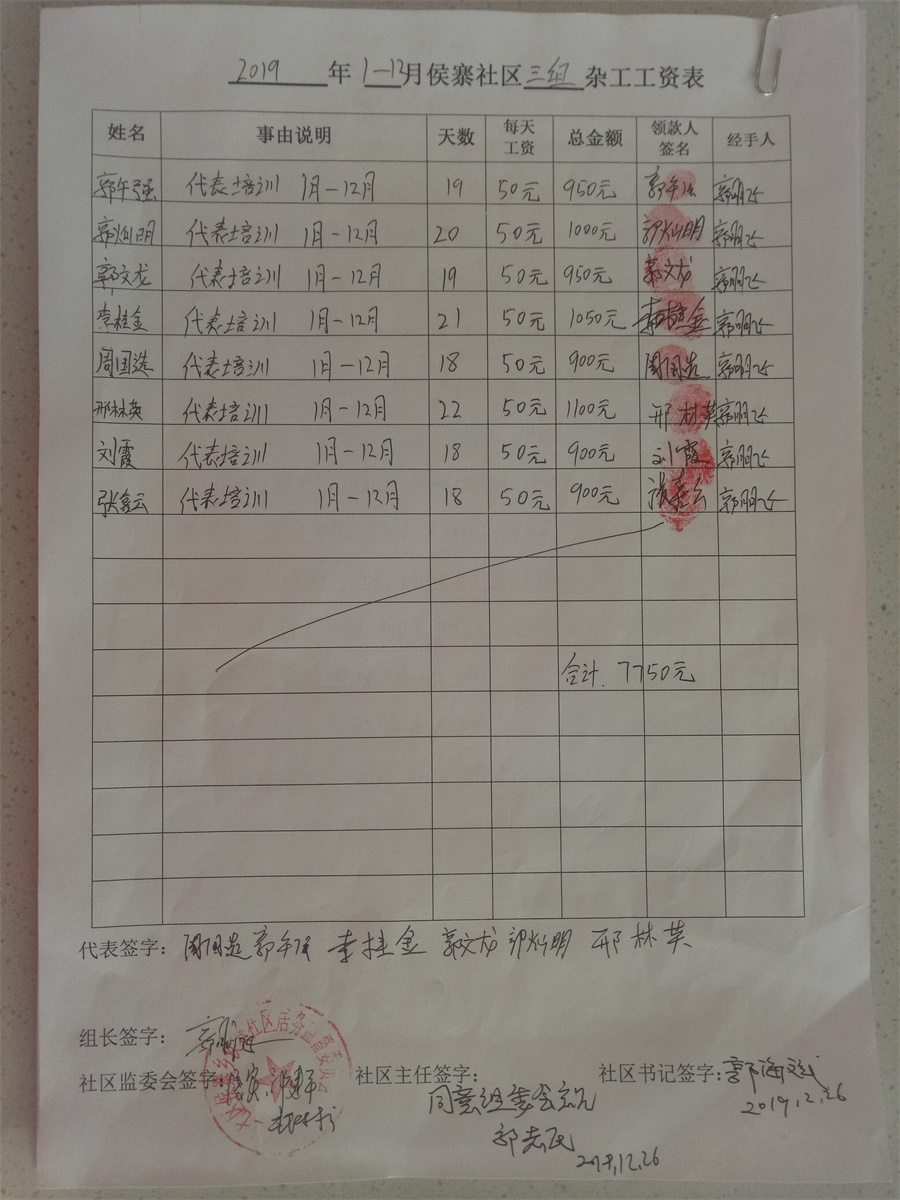 2019 年 1-12月侯寨社区 三组 杂工工资表
姓名 事由说明 天数 每天工资 总金额 领款人签名 经手人
郭午强 代表培训 1月-12月 19 50元 950元 郭午强 郭朋飞
郭灿明 代表培训 1月-12月 20 50元 1000元 郭灿明 郭朋飞
郭文龙 代表培训 1月-12月 19 50元 950元 郭文龙 郭朋飞
李桂金 代表培训 1月-12月 21 50元 1050元 李桂金 郭朋飞
周国选 代表培训 1月-12月 18 50元 900元 周国选 郭朋飞
邢林英 代表培训 1月-12月 22 50元 1100元 邢林英 郭朋飞
刘霞 代表培训 1月-12月 18 50元 900元 刘霞 郭朋飞
张喜云 代表培训 1月-12月 18 50元 900元 张喜云 郭朋飞
合计. 7750元
代表签字: 周国选 郭午强 李桂金 郭文龙 郭灿明 邢林英
组长签字: 郭朋飞
社区监委会签字: 社区主任签字: 社区书记签字:
同意组委会意见
2019.12.26
郭志民
2019.12.26